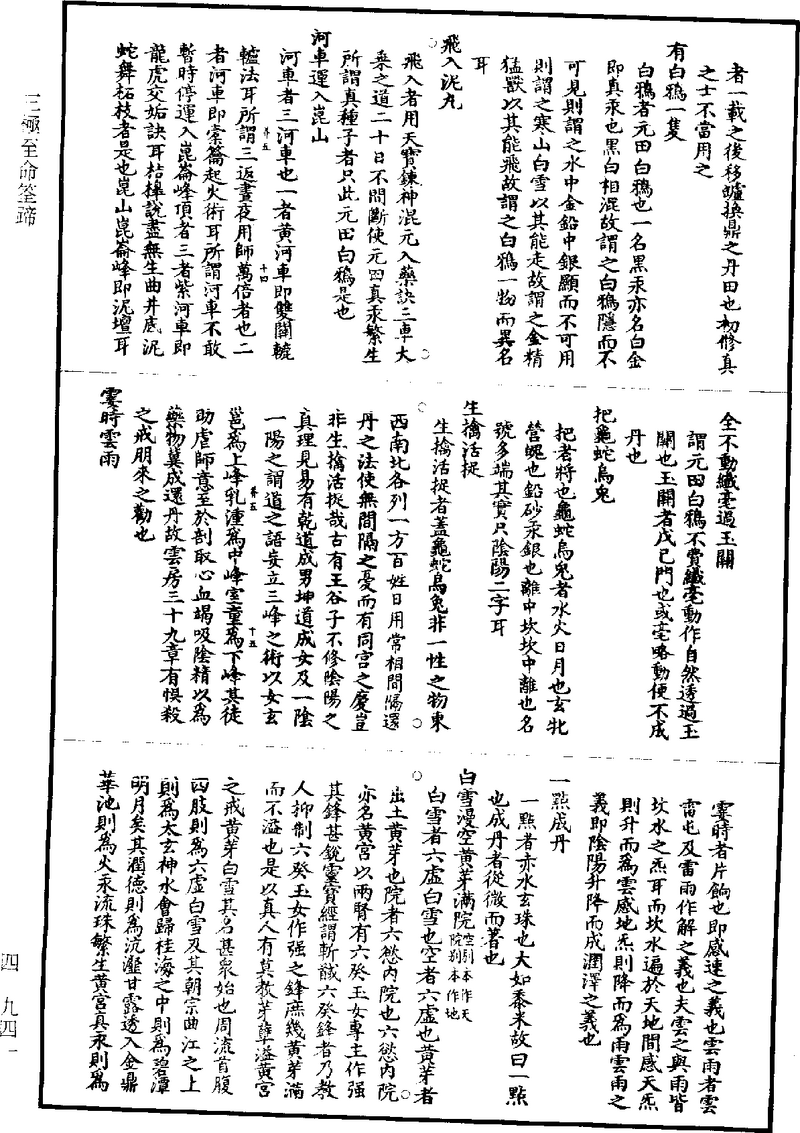 者一載之後移爐換鼎之丹田也初修真
之士不當用之
有白鴉一隻
白鴉者元田白鴉也一名黑汞亦名白金
即真汞也黑白相混故謂之白鴉隱而不
可見則謂之水中金鉛中銀顯而不可用
則謂之寒山白雪以其能走故謂之金精
猛獸以其能飛故謂之白鴉一物而異名
耳
飛入泥丸
飛入者用天寶鍊神混元入藥訣三車大
乘之道二十日不間斷使元田真汞繁生
所謂真種子者只此元田白鴉是也
河車運入崑山
河車者三河車也一者黃河車即雙關轆
轤法耳所謂三返晝夜用師萬倍者也二
者河車即橐籥起火術耳所謂河車不敢
暫時停運入崑崙峰頂者三者紫河車即
龍虎交姤訣耳桔橰說盡無生曲井底泥
蛇舞柘枝者是也崑山崑崙峰即泥壇耳
全不動纖毫過玉關
謂元田白鴉不費纖毫動作自然透過玉
關也玉關者戊己門也或毫略動便不成
丹也
把龜蛇烏兔
把者將也龜蛇烏兔者水火日月也玄牝
營魄也鉛砂汞銀也離中坎坎中離也名
號多端其實只陰陽二字耳
生擒活捉
生擒活捉者蓋龜蛇烏兔非一性之物東
西南北各列一方百姓日用常相間隔還
丹之法使無間隔之憂而有同宮之慶豈
非生擒活捉哉古有王谷子不修陰陽之
真理見易有乾道成男坤道成女及一陰
一陽之謂道之語妄立三峰之術以女玄
邕為上峰乳湩為中峰室童為下峰其徒
助虐師意至於剖取心血竭吸陰精以為
藥物冀成還丹故雲房三十九章有悞殺
之戒朋來之勸也
霎時雲雨
霎時者片餉也即感速之義也雲雨者雲
雷屯及雷雨作解之義也夫雲之與雨皆
坎水之炁耳而坎水遍於天地間感天炁
則升而為雲感地炁則降而為雨雲雨之
義即陰陽升降而成潤澤之義也
一點成丹
一點者亦水玄珠也大如黍米故曰一點
也成丹者從微而著也
白雪漫空黃芽滿院空別本作天院別本作地
白雪者六虛白雪也空者六虛也黃芽者
出土黃芽也院者六慾內院也六慾內院
亦名黃宮以兩腎有六癸玉女專主作强
其鋒甚銳靈寶經謂斬馘六癸鋒者乃教
人抑制六癸玉女作强之鋒庶幾黃芽滿
而不溢也是以真人有莫教芽蘖溢黃宮
之戒黃芽白雪其名甚衆始也周流首腹
四肢則為六虛白雪及其朝宗曲江之上
則為太玄神水會歸桂海之中則為碧潭
明月矣其潤德則為沆瀣甘露透入金鼎
華池則為火汞流珠繁生黃宮真汞則為
三極至命筌蹄
四 九四一
卷五
十四
卷五
十五